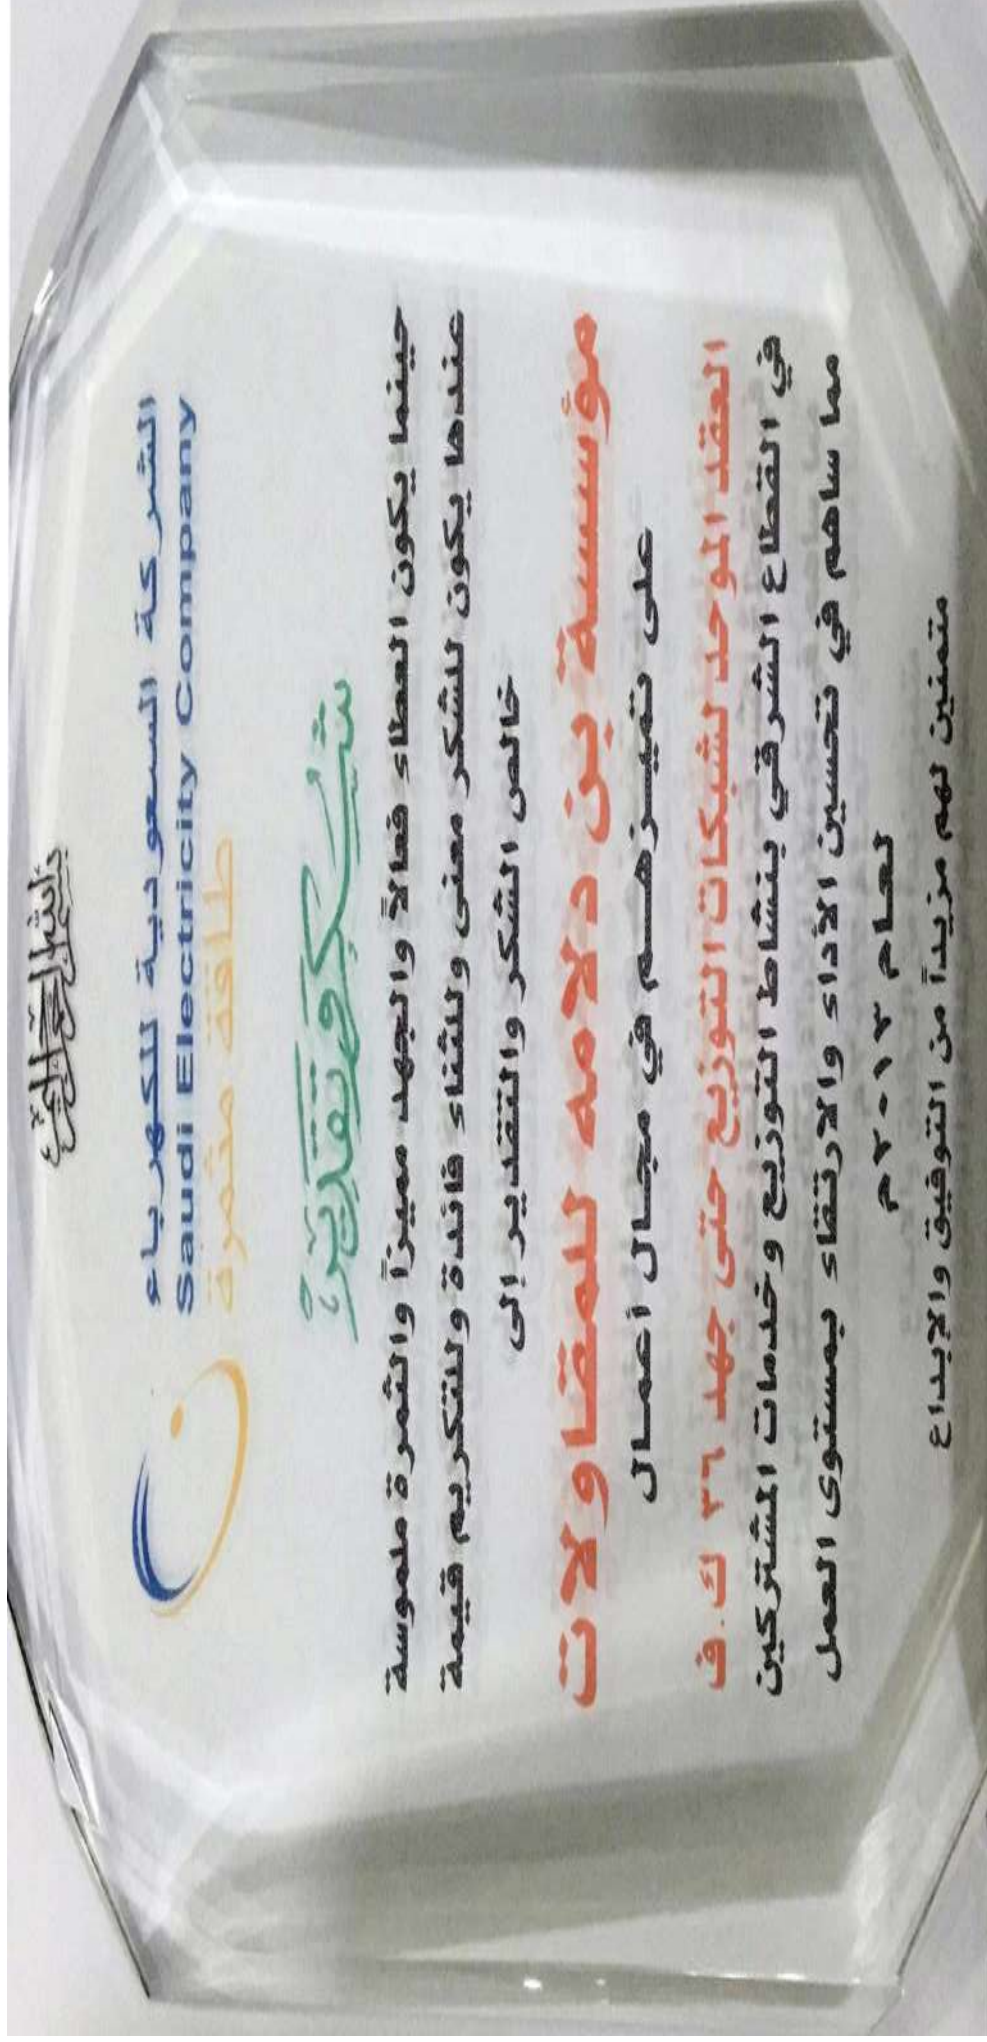 بسم الله الرحمن الرحيم
الشركة السعودية للكهرباء
Saudi Electricity Company
طاقة مثمرة
شكر وتقدير
حينما يكون العطاء فعالاً والجهد مميزاً والثمرة ملموسة
عندها يكون للشكر معنى وللثناء فائدة وللتكريم قيمة
خالص الشكر والتقدير إلى
مؤسسة بن دلامه للمقاولات
على تميزهم في مجال أعمال
العقد الموحد لشبكات التوزيع حتى جهد ٣٦ ك.ف
في القطاع الشرقي بنشاط التوزيع وخدمات المشتركين
مما ساهم في تحسين الأداء والارتقاء بمستوى العمل
لعام ٢٠١٣م
متمنين لهم مزيداً من التوفيق والإبداع